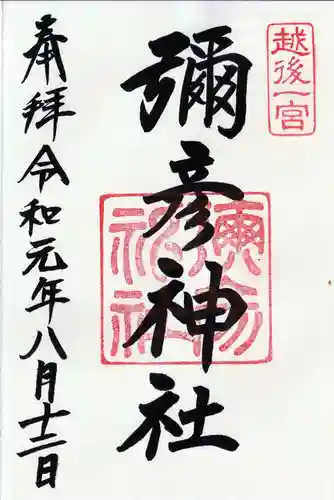 越後一宮
彌彦神社
奉拝令和元年八月十二日